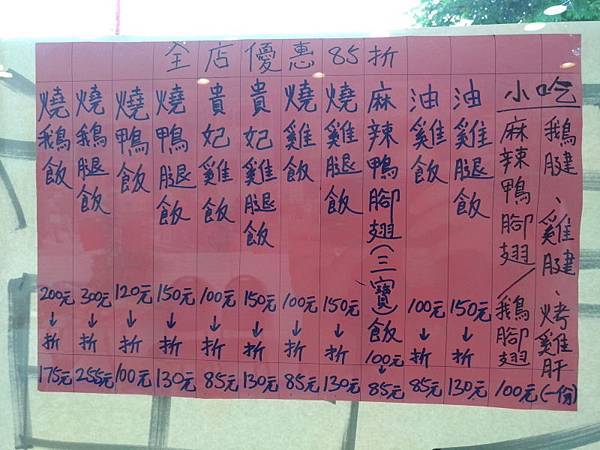 全店優惠85折
燒鵝飯 200元↓折 175元
燒鵝腿飯 300元↓折 255元
燒鴨飯 120元↓折 100元
燒鴨腿飯 150元↓折 130元
貴妃雞飯 100元↓折 85元
貴妃雞腿飯 150元↓折 130元
燒雞飯 100元↓折 85元
燒雞腿飯 150元↓折 130元
麻辣鴨腳翅(三寶)飯 100元↓85元
油雞飯 100元↓折 85元
油雞腿飯 150元↓折 130元
小吃
麻辣鴨腳翅/鵝腳翅
鵝腱、雞腱、烤雞肝
100元(一份)